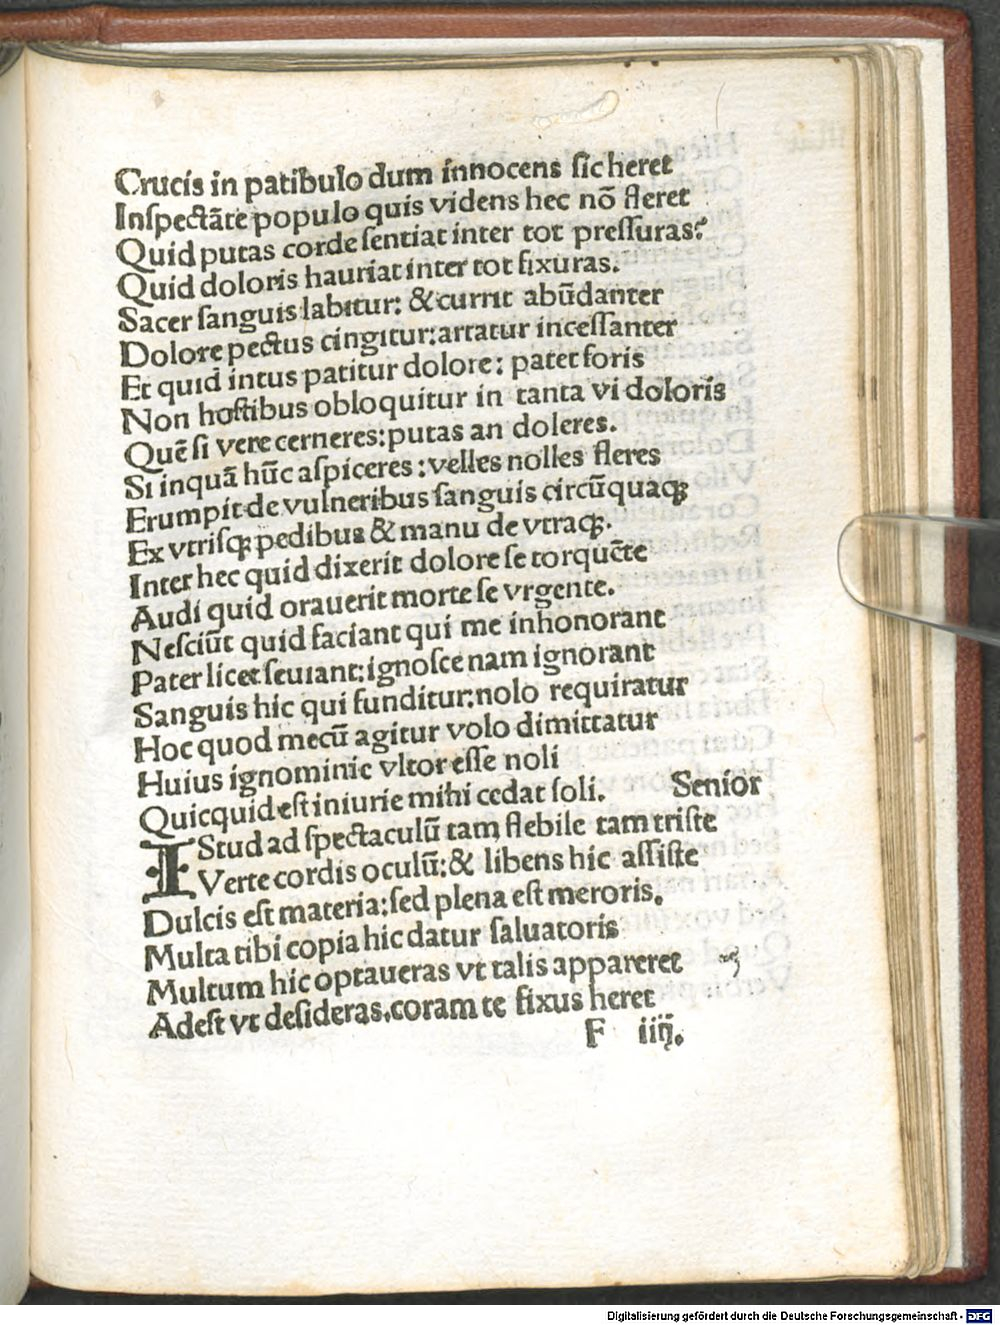 Crucis in patibulo dum innocens sic heret
Inſpectāte populo quis videns hec nō fleret
Quid putas corde ſentiat inter tot preſſuras?
Quid doloris hauriat inter tot fixuras.
Sacer ſanguis labitur: & currit abūdanter
Dolore pectus cingitur: artatur inceſſanter
Et quid intus patitur dolore: patet foris
Non hoſtibus obloquitur in tanta vi doloris
Quē ſi vere cerneres: putas an doleres.
Si inquā hūc aſpiceres: velles nolles fleres
Erumpit de vulneribus ſanguis circūquaqꝫ
Ex vtriſqꝫ pedibus & manu de vtraqꝫ.
Inter hec quid dixerit dolore ſe torquēte
Audi quid orauerit morte ſe vrgente.
Neſciūt quid faciant qui me inhonorant
Pater licet ſeuiant: ignoſce nam ignorant
Sanguis hic qui funditur: nolo requiratur
Hoc quod mecū agitur volo dimittatur
Huius ignominie vltor eſſe noli
Quicquid eſt iniurie mihi cedat ſoli. Senior
IStud ad ſpectaculū tam flebile tam triſte
Verte cordis oculū: & libens hic aſſiſte
Dulcis eſt materia: ſed plena eſt meroris.
Multa tibi copia hic datur ſaluatoris
Multum hic optaueras vt talis appareret
Adeſt vt deſideras. coram te fixus heret
F iiij.
Digitalisierung gefördert durch die Deutsche Forschungsgemeinschaft - DFG